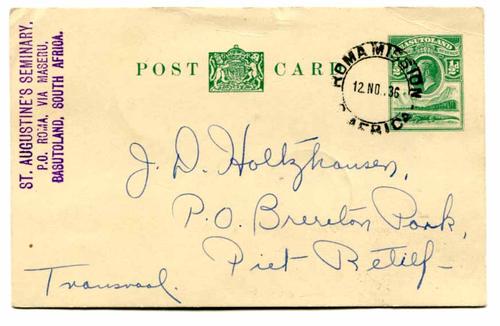 ST. AUGUSTINE'S SEMINARY,
P.O. ROMA, VIA MASERU,
BASUTOLAND, SOUTH AFRICA.
POST CARD
BASUTOLAND
½d
ROMA MISSION
12.NO..36
AFRICA
J. D. Holtzhausen,
P.O. Brereton Park,
Piet Retief
Transvaal.